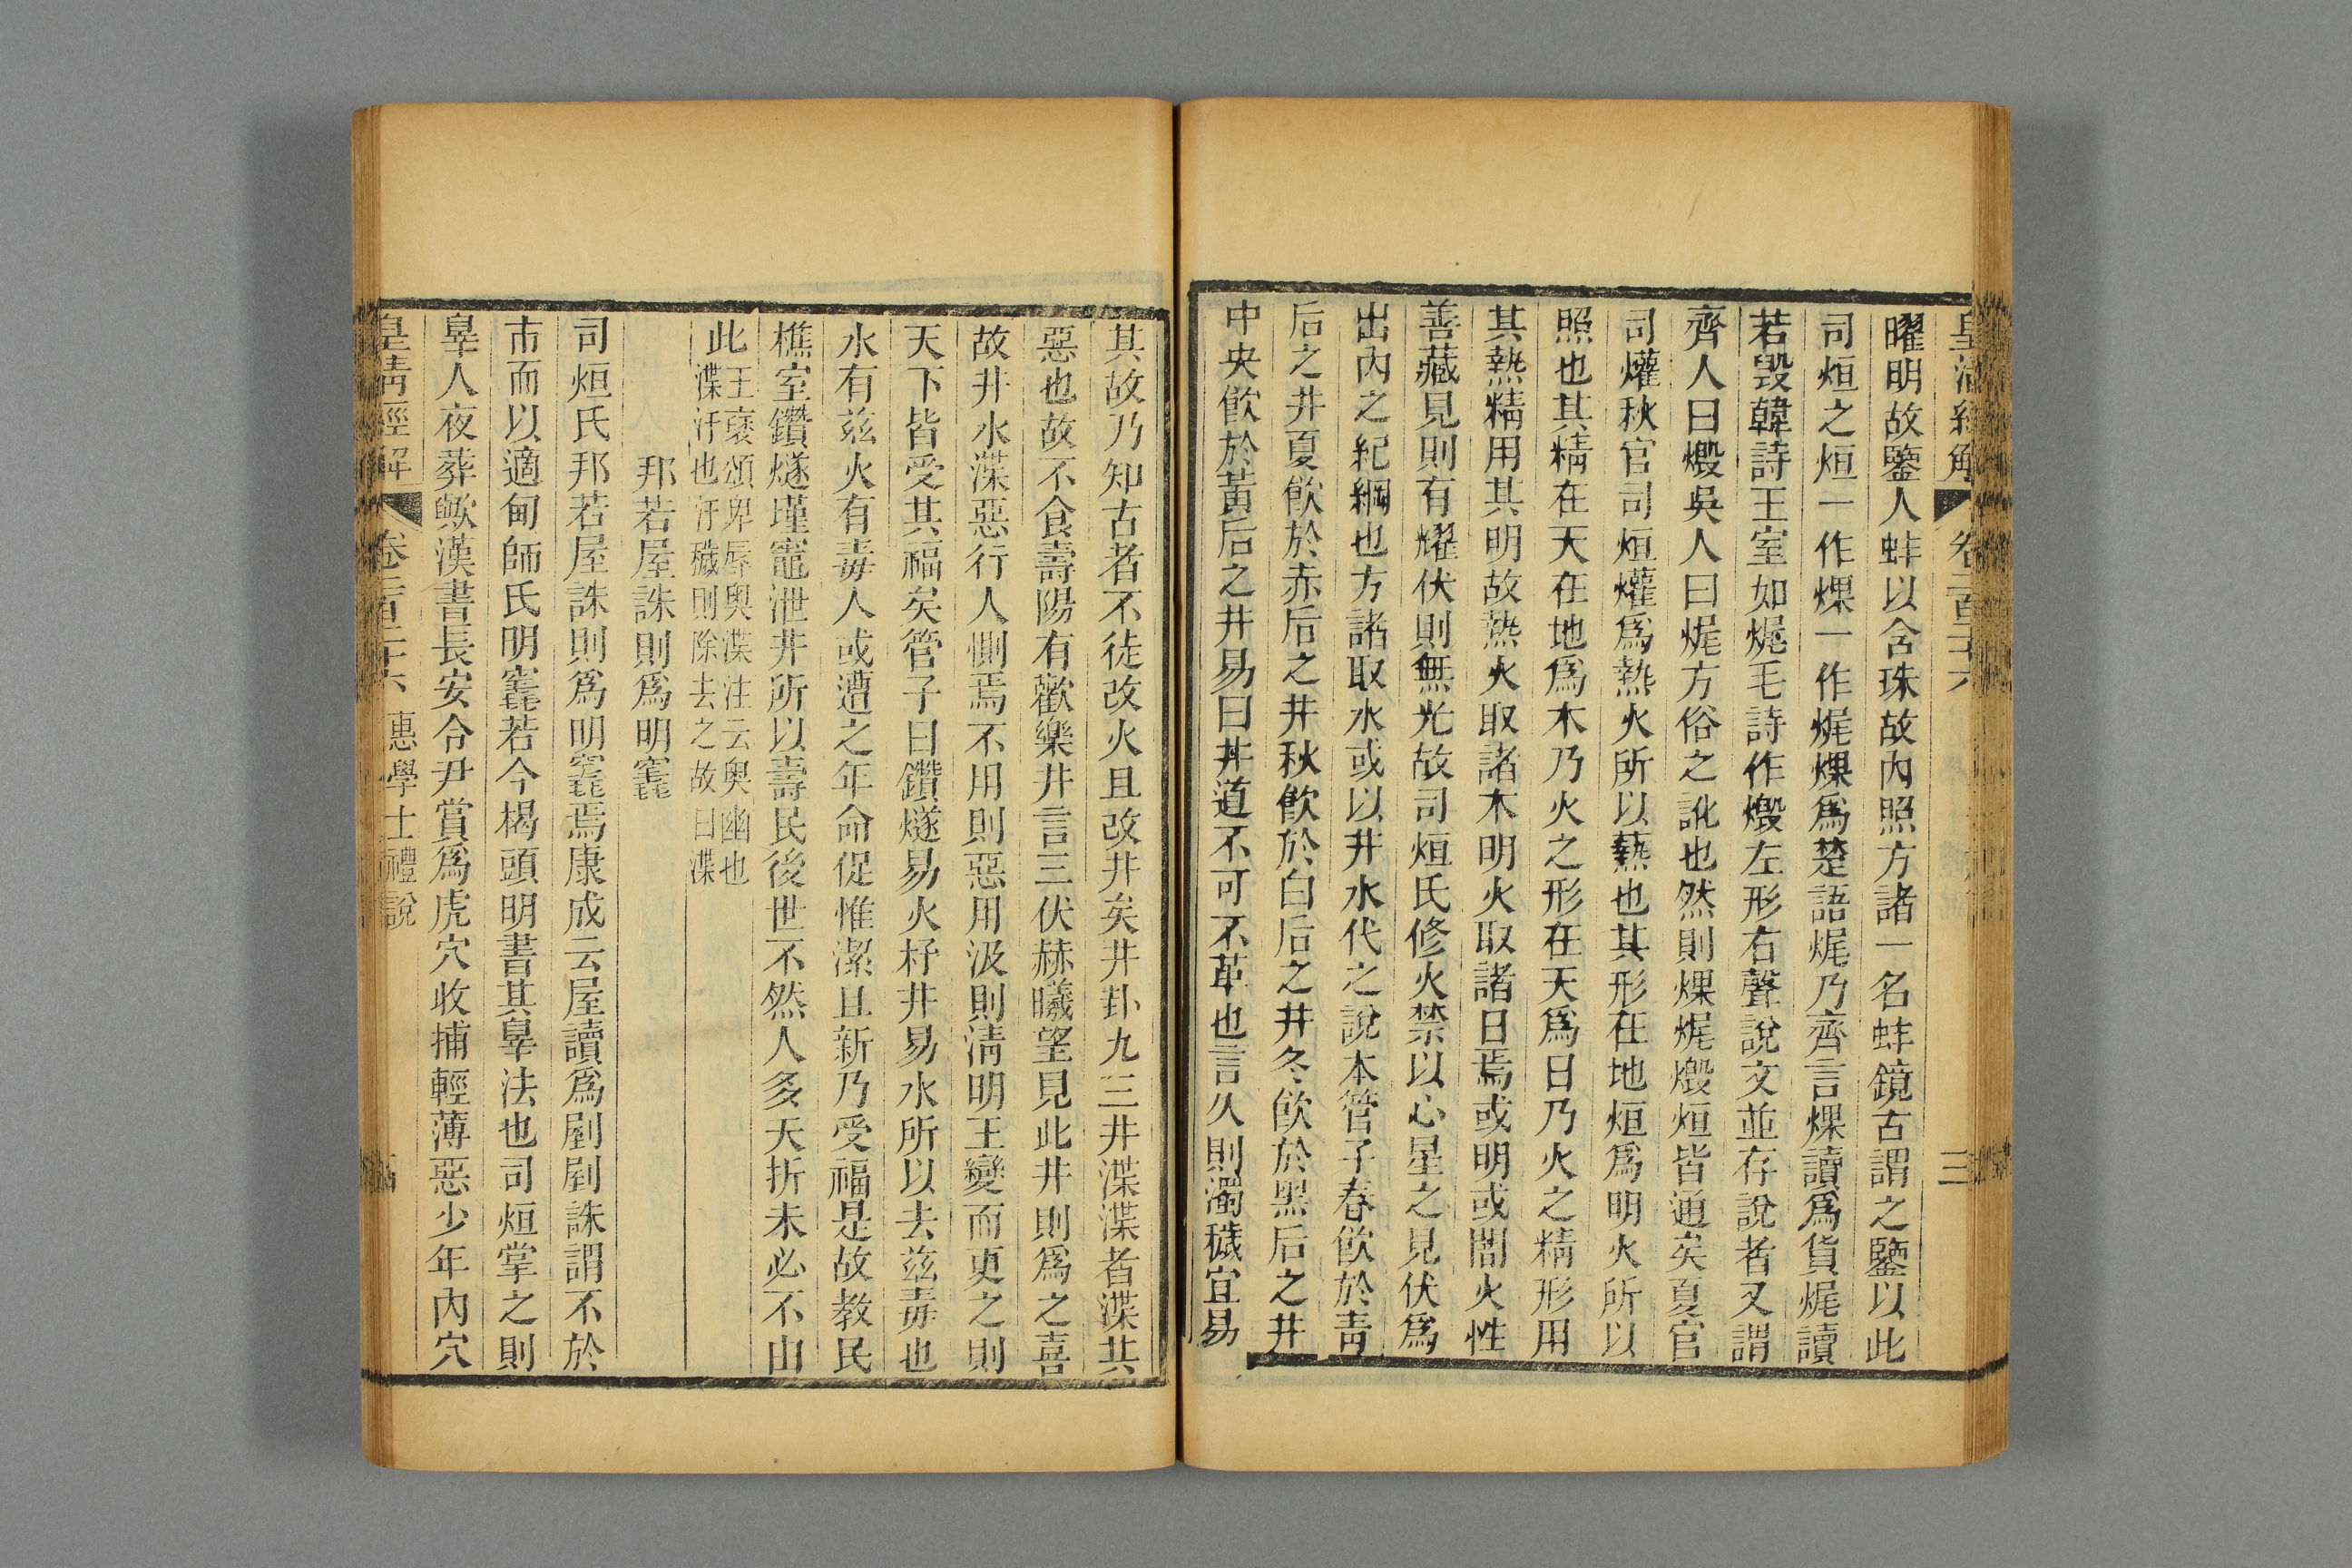 皇清經解 卷二百二十六 三
曜明故鑒人蚌以含珠故內照方諸一名蚌鏡古謂之鑒以此
司烜之烜一作燬一作焜燬爲楚語焜乃齊言燬讀爲貨焜讀
若毀韓詩王室如焜毛詩作燬左形右聲說文並存說者又謂
齊人曰燬吳人曰焜方俗之訛也然則燬焜燬烜皆通矣夏官
司爟秋官司烜爟爲熱火所以爇也其形在地烜爲明火所以
照也其精在天在地爲木乃火之形在天爲日乃火之精形用
其熱精用其明故熱火取諸木明火取諸日焉或明或闇火性
善藏見則有耀伏則無光故司烜氏修火禁以心星之見伏爲
出內之紀綱也方諸取水或以井水代之說本管子春飮於靑
后之井夏飮於赤后之井秋飮於白后之井冬飮於黑后之井
中央飮於黃后之井易曰井道不可不革也言久則濁穢宜易
其故乃知古者不徒改火且改井矣井卦九三井渫渫者渫其
惡也故不食壽陽有歡樂井言三伏赫曦望見此井則爲之喜
故井水渫惡行人惻焉不用則惡用汲則淸明王變而更之則
天下皆受其福矣管子曰鑽燧易火杼井易水所以去茲毒也
水有茲火有毒人或遭之年命促惟潔且新乃受福是故教民
樵室鑽燧墐竈泄井所以壽民後世不然人多夭折未必不由
此王襃頌卑辱奧渫注云奧幽也渫汙也汙穢則除去之故曰渫
邦若屋誅則爲明竁
司烜氏邦若屋誅則爲明竁焉康成云屋讀爲剭剭誅謂不於
市而以適甸師氏明竁若今楬頭明書其辠法也司烜掌之則
辠人夜葬歟漢書長安令尹賞爲虎穴收捕輕薄惡少年內穴
皇清經解 卷二百二十六 惠學士禮說